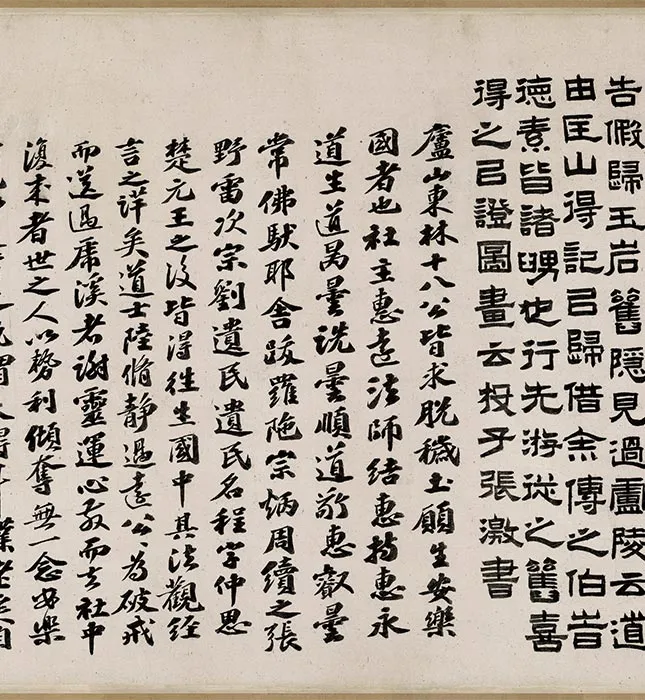 告假歸玉岩舊隱見過盧陵云道
由匡山得記㠯歸借余傳之伯旹
德素皆諸甥也行先游從之舊喜
得之㠯證圖畫云投子張激書
廬山東林十八公皆求脫穢土願生安樂
國者也社主惠遠法師結惠持惠永
道生道昺曇詵曇順道敬惠叡曇
常佛馱耶舍跋羅陁宗炳周續之張
野雷次宗劉遺民遺民名程字仲思
楚元王之後皆得往生國中其法觀經
言之詳矣道士陸脩靜過遠公為破戒
而送過虎溪者謝靈運心而去社中
復來者世之人以勢利傾奪無一念安樂